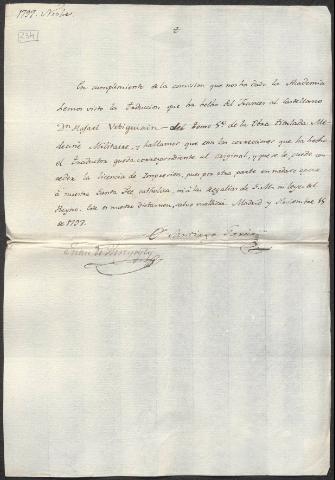 1797. Novbre
234
En cumplimiento de la comision que nos ha dado la Academia
hemos visto la traduccion que ha hecho del frances al castellano
Dn. Rafael del tomo 5º de la Obra titulada Me-
decine Militaire, y hallamos que con las correcciones que ha hecho
el traductor queda correspondiente al original, y que se le puede con-
ceder la licencia de Impresion, pues por otra parte en nada se opone
à nuestra Santa Fee catholica, ni à las regalias de S.M. ni leyes del
Reyno. Este es nuestro dictamen, salvo meliori. Madrid y Noviembre 15
de 1797.
Santiago Garcia
Juan de